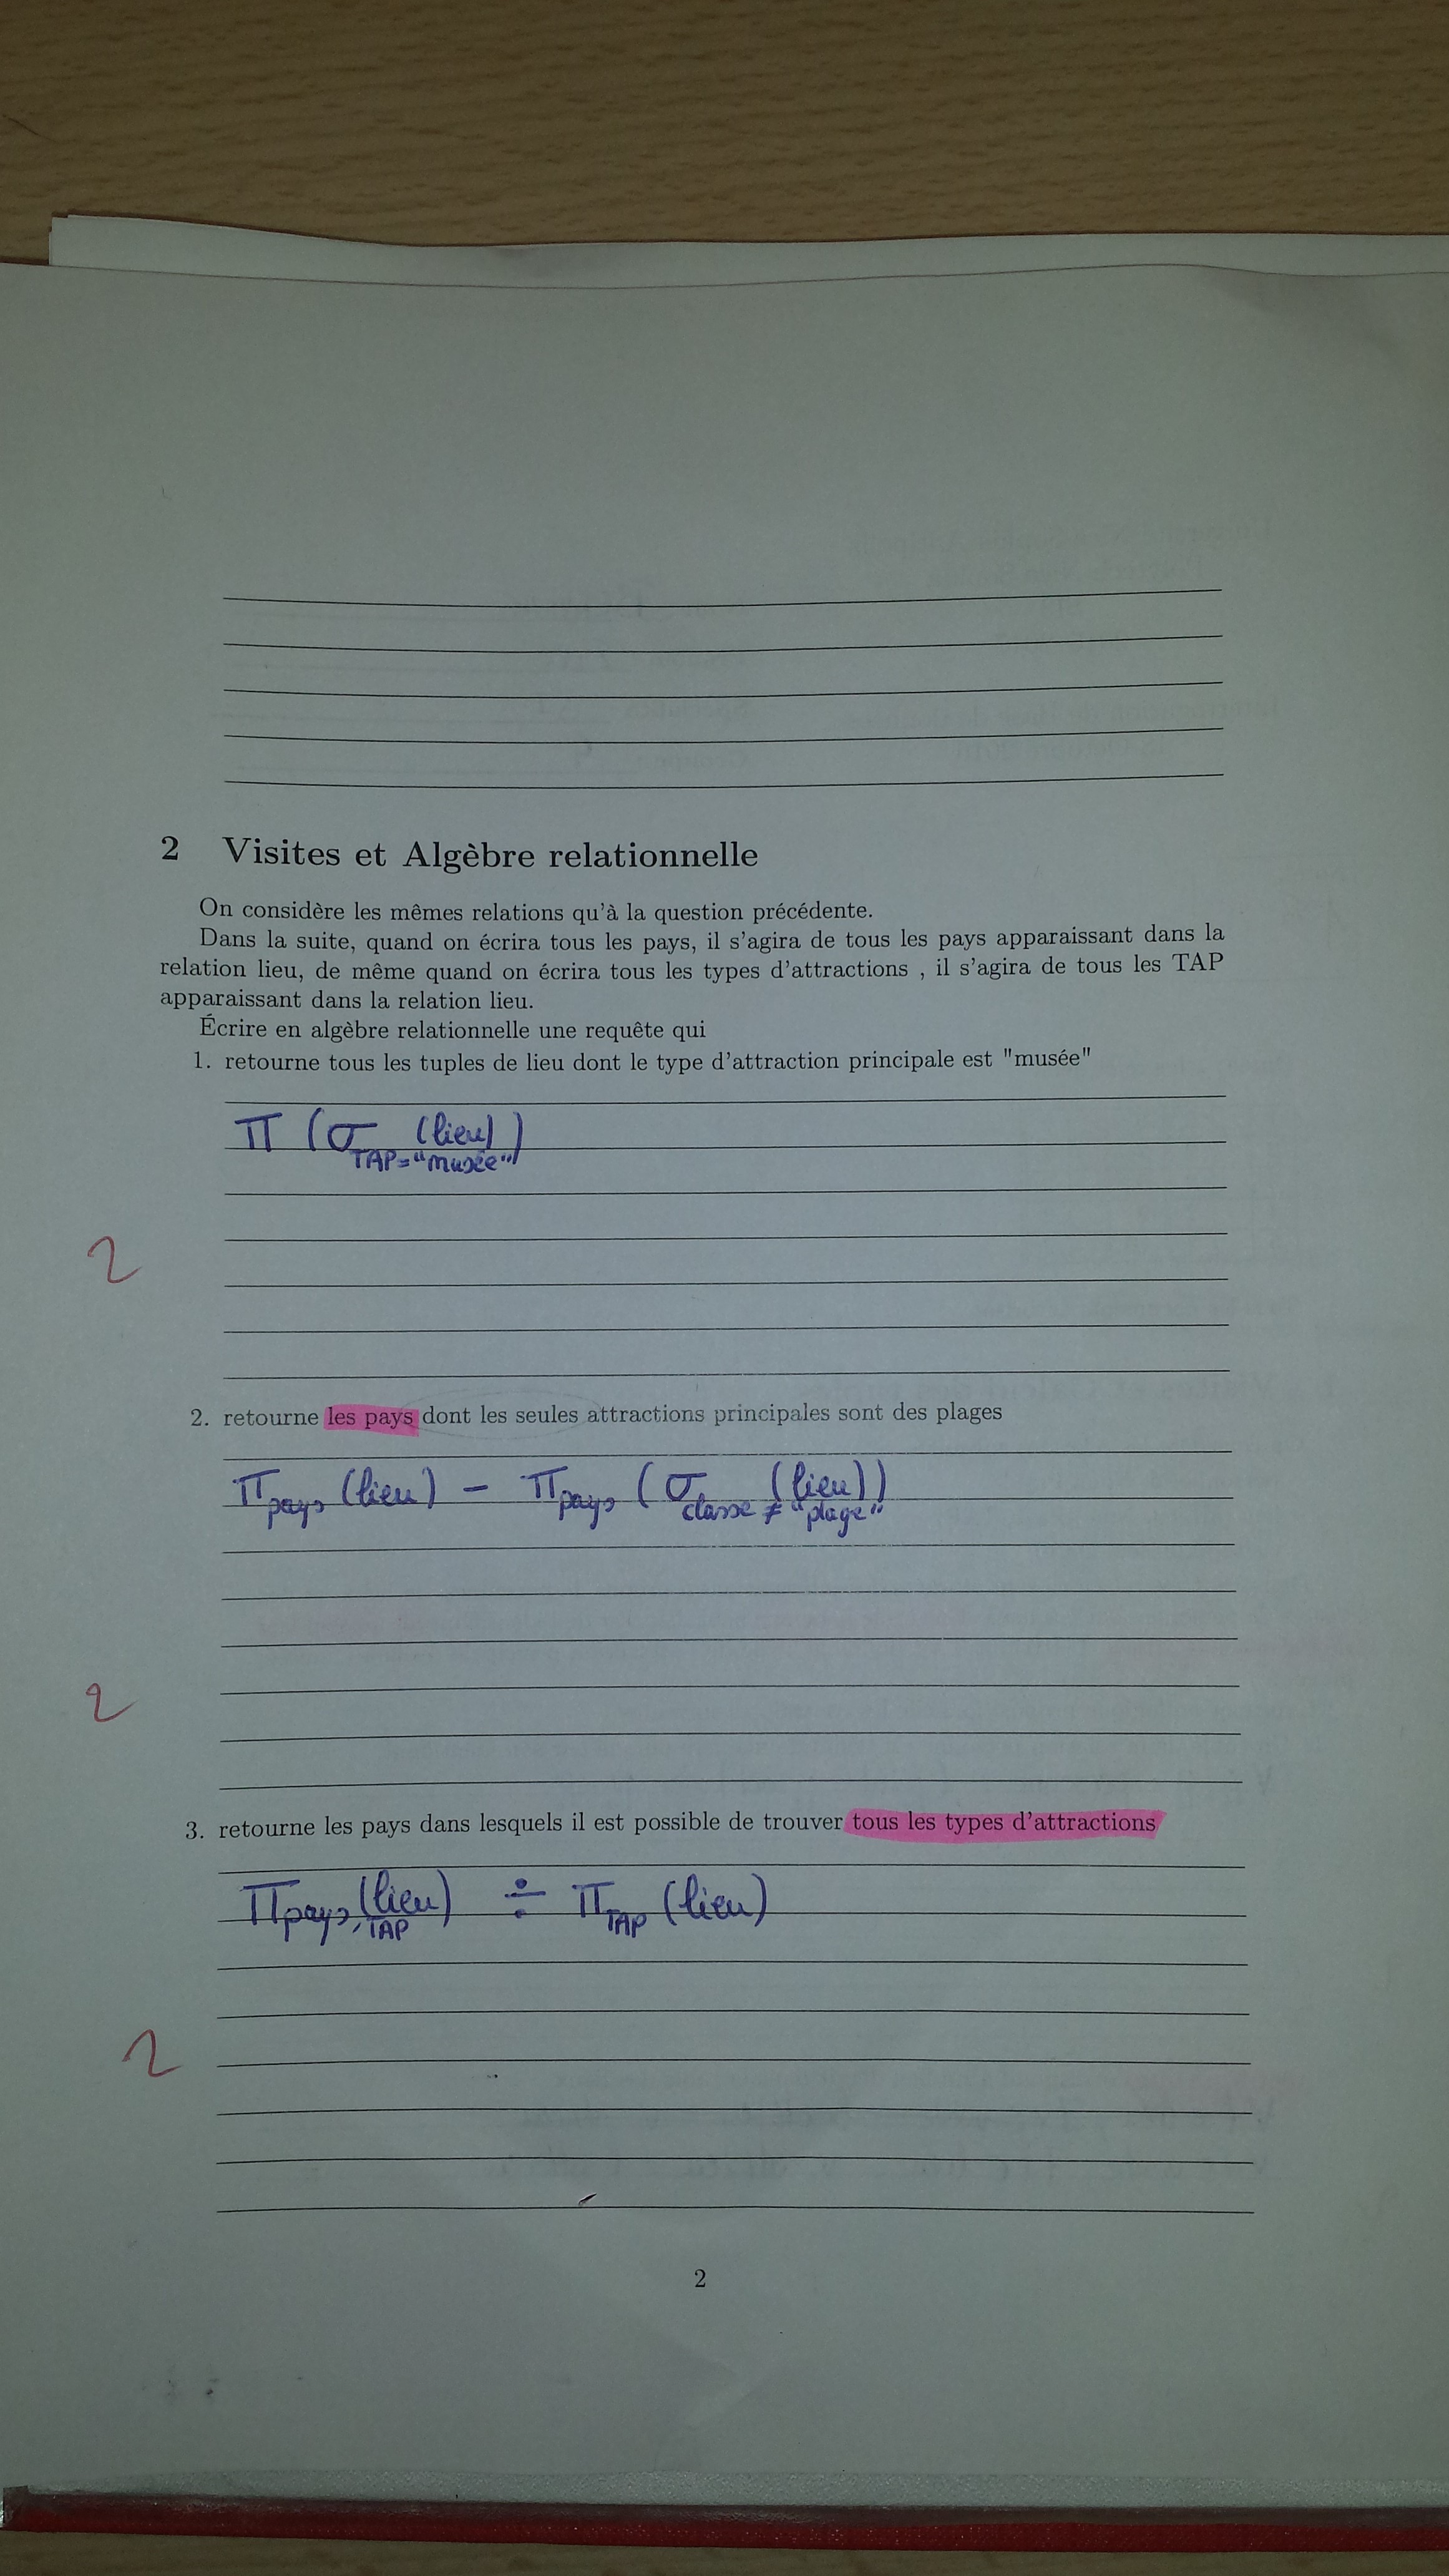 2 Visites et Algèbre relationnelle
On considère les mêmes relations qu'à la question précédente.
Dans la suite, quand on écrira tous les pays, il s'agira de tous les pays apparaissant dans la
relation lieu, de même quand on écrira tous les types d'attractions , il s'agira de tous les TAP
apparaissant dans la relation lieu.
Écrire en algèbre relationnelle une requête qui
1. retourne tous les tuples de lieu dont le type d'attraction principale est "musée"
π (σ (lieu))
TAP="musée"
2
2. retourne les pays dont les seules attractions principales sont des plages
π pays (lieu) - π pays (σ (lieu))
classe ≠ "plage"
2
3. retourne les pays dans lesquels il est possible de trouver tous les types d'attractions
π pays, TAP (lieu) ÷ π TAP (lieu)
2
2